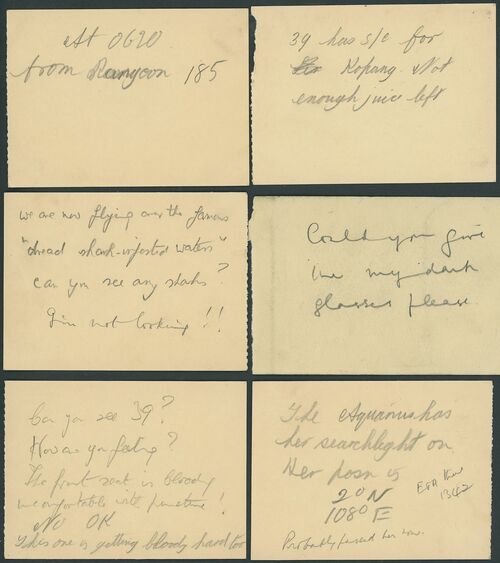 At 0620
from Rangoon 185
39 has s/c for
Kopang. Not
enough juice left
we are now flying over the famous
"dread shark-infested waters"
can you see any sharks?
I'm not looking!!
Could you give
me my dark
glasses please.
Can you see 39?
How are you feeling?
The front seat is bloody
uncomfortable with puncture!
No OK
This one is getting bloody hard too
The Aquarius has
her searchlight on
Her posn is
2° N
108° E
1342
Probably passed her now.